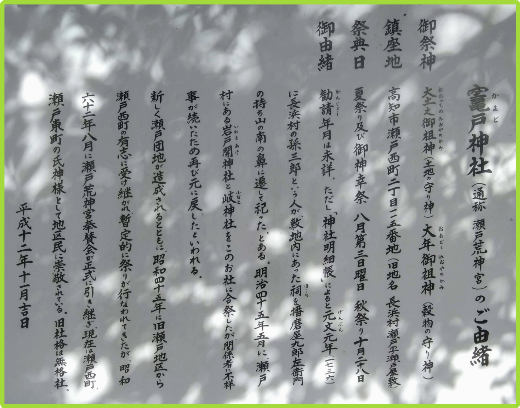 竈戸神社(通称 瀬戸荒神宮)のご由緒
御祭神 大土之御祖神(土地の守り神) 大年御祖神(穀物の守り神)
鎮座地 高知市瀬戸西町二丁目一二五番地(旧地名 長浜村瀬戸平瀬ノ屋敷)
祭典日 夏祭り及び御神幸祭 八月第三日曜日 秋祭り十月二八日
御由緒 勧請年月は未詳。ただし「神社明細帳」によると元文元年(一七三六)
に長浜村の孫三郎という人が敷地内にあった祠を播磨屋九郎左衛門
の持ち山の南の鼻に遷して祀った、とある。明治四十五年五月に瀬戸
村にある岩戸開神社と岐神社をこのお社に合祭したが関係者に不祥
事が続いたため再び元に戻したといわれる。
新しく瀬戸団地が造成されるとともに、昭和四十五年に旧瀬戸地区から
瀬戸西町の有志に受け継がれ暫定的に祭りが行なわれてきたが、昭和
六十二年八月に瀬戸荒神宮奉賛会が正式に引き継ぎ現在は瀬戸西町、
瀬戸東町の氏神様として地区民に崇敬されている。旧社格は無格社。
平成十二年十一月吉日